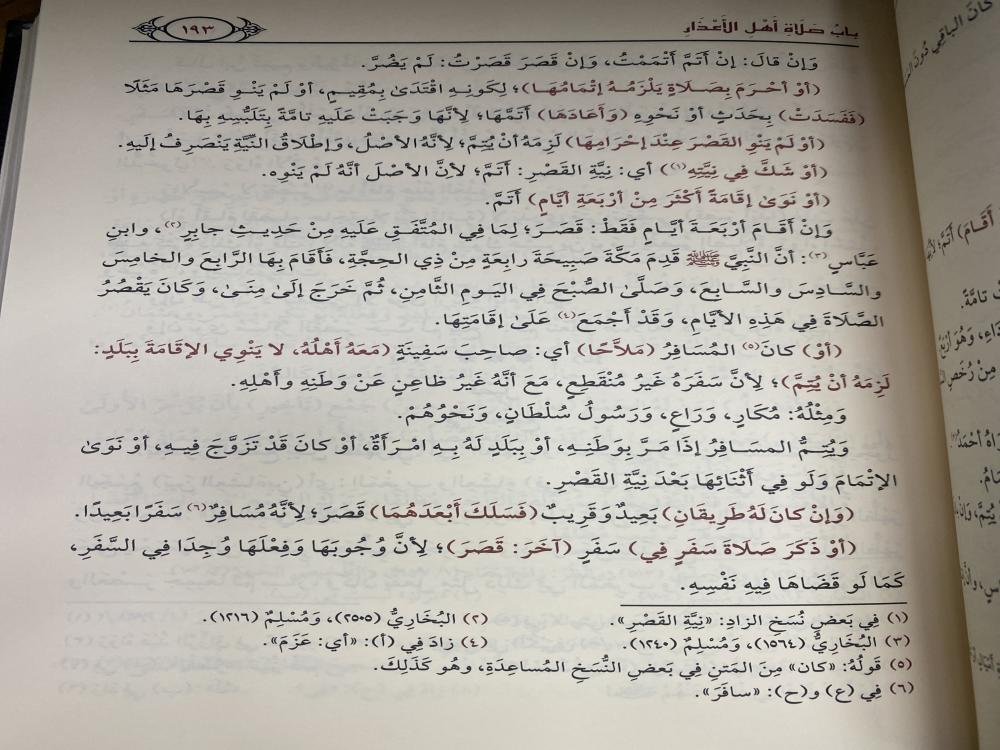 بابُ صَلَاةِ أَهْلِ الأَعْذَارِ
١٩٣
وَإِنْ قالَ: إِنْ أَتَمَّ أَتْمَمْتُ، وَإِنْ قَصَرَ قَصَرْتُ: لَمْ يَضُرَّ.
(أَوْ أَحْرَمَ بِصَلاةٍ يَلْزَمُهُ إِتْمَامُهَا)؛ لِكَونِهِ اقْتَدَىٰ بِمُقِيمٍ، أَوْ لَمْ يَنْوِ قَصْرَهَا مَثَلًا
(فَفَسَدَتْ) بِحَدَثٍ أَوْ نَحْوِهِ (وَأَعَادَهَا) أَتَمَّهَا؛ لِأَنَّهَا وَجَبَتْ عَلَيهِ تامَّةً بِتَلَبُّسِهِ بِهَا.
(أَوْ لَمْ يَنْوِ القَصْرَ عِنْدَ إِحْرَامِهَا) لَزِمَهُ أَنْ يُتِمَّ؛ لِأَنَّهُ الأَصْلُ، وَإِطْلَاقُ النِّيَّةِ يَنْصَرِفُ إِلَيهِ.
(أَوْ شَكَّ فِي نِيَّتِهِ(١)) أي: نِيَّةِ القَصْرِ: أَتَمَّ؛ لأنَّ الأَصْلَ أنَّهُ لَمْ يَنْوِهِ.
(أَوْ نَوَىٰ إِقَامَةً أَكْثَرَ مِنْ أَرْبَعَةِ أَيَّامٍ) أَتَمَّ.
وَإِنْ أَقَامَ أَرْبَعَةَ أَيَّامٍ فَقَطْ: قَصَرَ؛ لِمَا فِي المُتَّفَقِ عَلَيهِ مِنْ حَدِيثِ جابِرٍ(٢)، وابنِ
عَبَّاسٍ(٣): أنَّ النَّبِيَّ ﷺ قَدِمَ مَكَّةَ صَبِيحَةَ رابِعَةٍ مِنْ ذِي الحِجَّةِ، فَأَقَامَ بِهَا الرَّابِعَ والخامِسَ
والسَّادِسَ والسَّابِعَ، وَصَلَّىٰ الصُّبْحَ فِي اليَومِ الثَّامِنِ، ثُمَّ خَرَجَ إِلَىٰ مِنَىٰ، وَكَانَ يَقْصُرُ
الصَّلَاةَ فِي هَذِهِ الأَيَّامِ، وَقَدْ أَجْمَعَ(٤) عَلَىٰ إِقَامَتِهَا.
(أَوْ) كانَ(٥) المُسَافِرُ (مَلَّاحًا) أي: صاحِبَ سَفِينَةٍ (مَعَهُ أَهْلُهُ، لا يَنْوِي الإِقَامَةَ بِبَلَدٍ:
لَزِمَهُ أَنْ يُتِمَّ)؛ لِأَنَّ سَفَرَهُ غَيرُ مُنْقَطِعٍ، مَعَ أنَّهُ غَيرُ ظاعِنٍ عَنْ وَطَنِهِ وأَهْلِهِ.
وَمِثْلُهُ: مُكَارٍ، وَرَاعٍ، وَرَسُولُ سُلْطَانٍ، وَنَحْوُهُمْ.
وَيُتِمُّ المسَافِرُ إذَا مَرَّ بِوَطَنِهِ، أَوْ بِبَلَدٍ لَهُ بِهِ امْرَأَةٌ، أَوْ كانَ قَدْ تَزَوَّجَ فِيهِ، أَوْ نَوَىٰ
الإِتْمَامَ وَلَو فِي أَثْنَائِهَا بَعْدَ نِيَّةِ القَصْرِ.
(وَإِنْ كانَ لَهُ طَرِيقَانِ) بَعِيدٌ وَقَرِيبٌ (فَسَلَكَ أَبْعَدَهُمَا) قَصَرَ؛ لِأَنَّهُ مُسَافِرٌ(٦) سَفَرًا بَعِيدًا.
(أَوْ ذَكَرَ صَلَاةَ سَفَرٍ فِي) سَفَرٍ (آخَرَ: قَصَرَ)؛ لِأَنَّ وُجُوبَهَا وَفِعْلَهَا وُجِدَا فِي السَّفَرِ،
كَمَا لَو قَضَاهَا فِيهِ نَفْسِهِ.
(١) فِي بَعضِ نُسَخِ الزادِ: «نِيَّةِ القَصْرِ».
(٢) البُخَارِيُّ (٢٥٠٥)، وَمُسْلِمٌ (١٢١٦).
(٣) البُخَارِيُّ (١٥٦٤)، وَمُسْلِمٌ (١٢٤٠).
(٤) زادَ فِي (أ): «أي: عَزَمَ».
(٥) قَولُهُ: «كان» مِنَ المَتنِ فِي بَعضِ النُّسَخِ المُساعِدَةِ، وهُو كَذَلِكَ.
(٦) فِي (ع) و(ح): «سافَرَ».